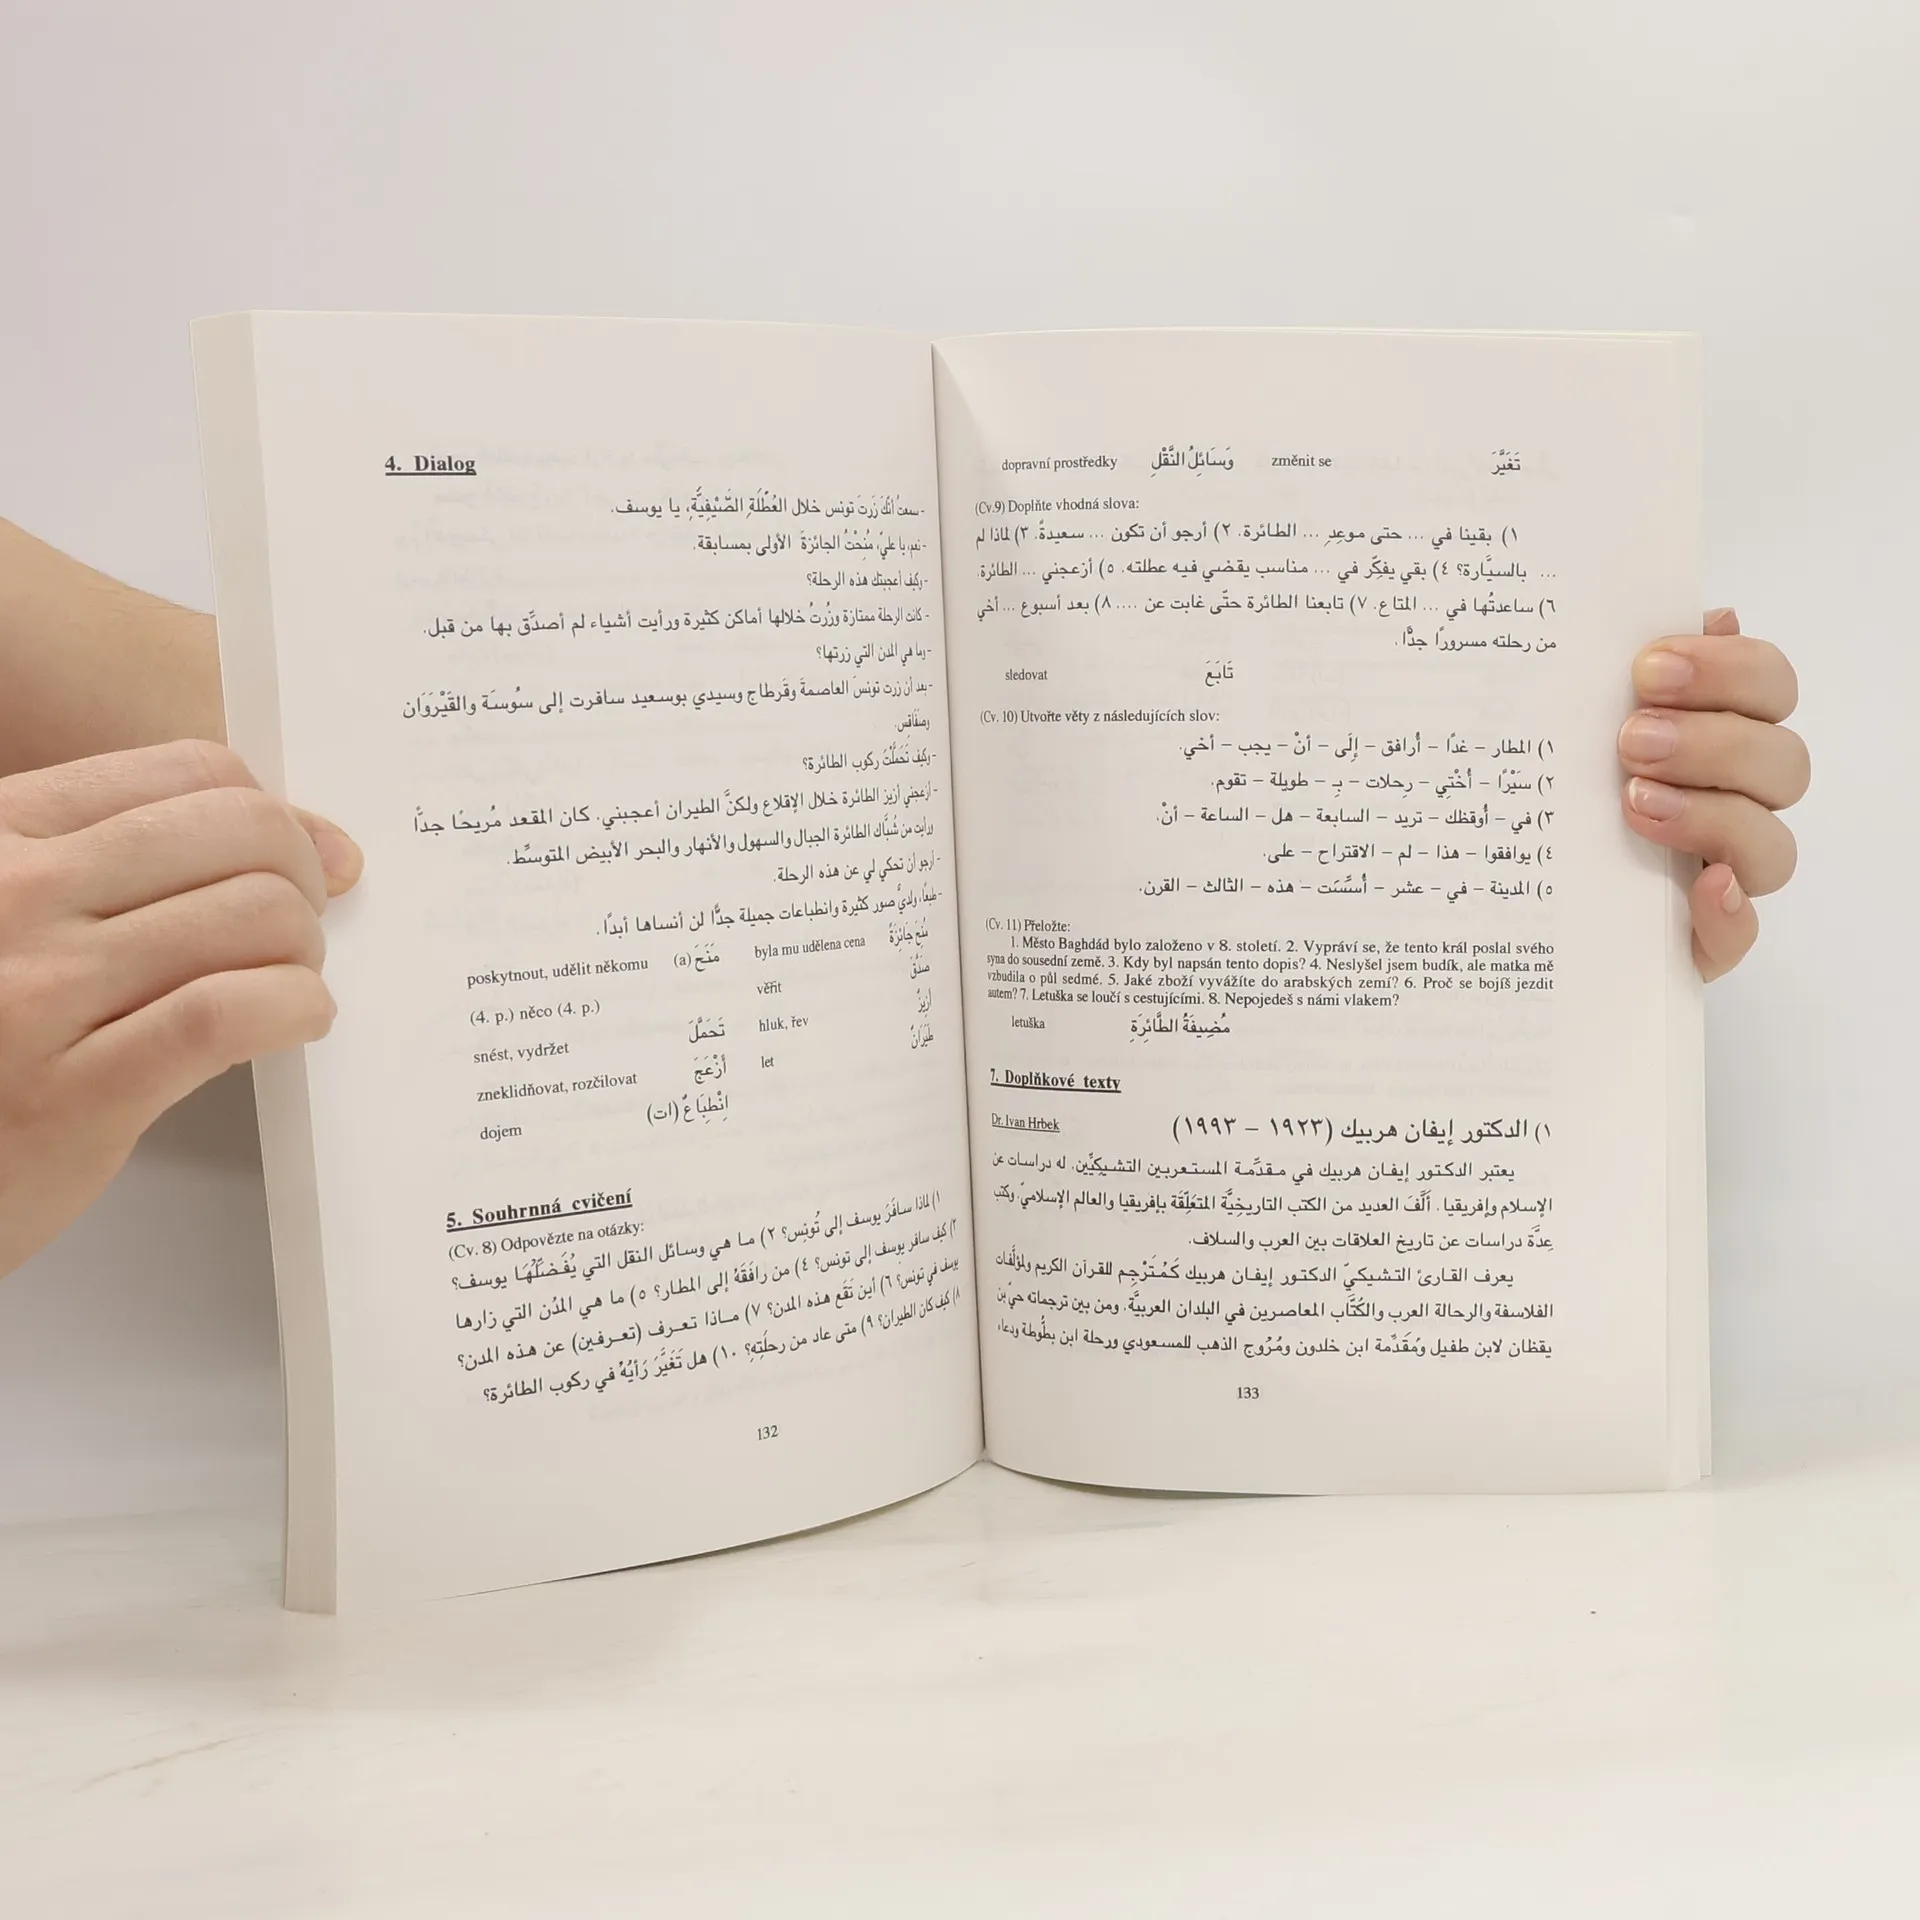 4. Dialog
- سمعتُ أنّكَ زَرتَ تونس خلال العُطْلَةِ الصَّيْفِيَّةِ، يا يوسف.
- نعم، يا عليّ، مُنِحْتُ الجائزةَ الأولى بمسابقة.
- وكيف أعجبتك هذه الرحلة؟
- كانت الرحلة ممتازة وزُرتُ خلالها أماكن كثيرة ورأيت أشياء لم أصدِّق بها من قبل.
- وما هي المدن التي زرتها؟
- بعد أن زرت تونسَ العاصمةَ وقَرطاج وسيدي بوسعيد سافرت إلى سُوسَة والقَيْرَوَان
وصفاقس.
- وكيف تَحَمَّلْتَ ركوب الطائرة؟
- أزعجني أزيز الطائرة خلال الإقلاع ولكنَّ الطيران أعجبني. كان المقعد مُريحًا جدًّا
ورأيت من شُبَّاك الطائرة الجبال والسهول والأنهار والبحر الأبيض المتوسِّط.
- أرجو أن تحكي لي عن هذه الرحلة.
- طبعًا، ولديَّ صور كثيرة وانطباعات جميلة جدًّا لن أنساها أبدًا.
poskytnout, udělit někomu مَنَحَ (a) byla mu udělena cena مُنِحَ جَائِزَةً
(4. p.) něco (4. p.) věřit صَدَّقَ
snést, vydržet تَحَمَّلَ hluk, řev أزِيزٌ
zneklidňovat, rozčilovat أَزْعَجَ let طَيَرَانٌ
dojem اِنْطِبَاعٌ (ات)
5. Souhrnná cvičení
(Cv. 8) Odpovězte na otázky:
١) لماذا سافَرَ يوسف إلى تُونِس؟ ٢) ما هي وسائل النقل التي يُفَضِّلُهَا يوسف؟
٣) كيف سافر يوسف إلى تونس؟ ٤) من رافَقَهُ إلى المطار؟ ٥) ما هي المدُن التي زارها
يوسف في تونس؟ ٦) أين تَقَع هذه المدن؟ ٧) مـاذا تعـرف (تعـرفين) عن هذه المدن؟
٨) كيف كان الطيران؟ ٩) متى عاد من رحلَتِهِ؟ ١٠) هل تَغَيَّرَ رَأيُهُ في ركوب الطائرة؟
132
dopravní prostředky وَسَائِلُ النَّقْلِ změnit se تَغَيَّرَ
(Cv.9) Doplňte vhodná slova:
١) بقينا في ... حتى موعِدِ ... الطائرة. ٢) أرجو أن تكون ... سعيدةً. ٣) لماذا لم
... بالسيَّارة؟ ٤) بقي يفكِّر في ... مناسب يقضي فيه عطلته. ٥) أزعجني ... الطائرة.
٦) ساعدتُها في ... المتاع. ٧) تابعنا الطائرة حتّى غابت عن .... ٨) بعد أسبوع ... أخي
من رحلته مسرورًا جدًّا.
sledovat تَابَعَ
(Cv. 10) Utvořte věty z následujících slov:
١) المطار – غدًا – أُرافق – إِلَى – أنْ – يجب – أخي.
٢) سَيْرًا – أُخْتِي – رحلات – بِـ – طويلة – تقوم.
٣) في – أُوقظك – تريد – السابعة – هل – الساعة – أنْ.
٤) يوافقوا – هذا – لم – الاقتراح – على.
٥) المدينة – في – عشر – أُسِّسَت – هذه – الثالث – القرن.
(Cv. 11) Přeložte:
1. Město Baghdád bylo založeno v 8. století. 2. Vypráví se, že tento král poslal svého
syna do sousední země. 3. Kdy byl napsán tento dopis? 4. Neslyšel jsem budík, ale matka mě
vzbudila o půl sedmé. 5. Jaké zboží vyvážíte do arabských zemí? 6. Proč se bojíš jezdit
autem? 7. Letuška se loučí s cestujícími. 8. Nepojedeš s námi vlakem?
letuška مُضِيفَةُ الطَّائِرَةِ
7. Doplňkové texty
Dr. Ivan Hrbek ١) الدكتور إيفان هربيك (١٩٢٣ – ١٩٩٣)
يعتبر الدكتور إيفـان هربيك في مـقدَّمـة المستـعربـين التشـيكيِّين. له دراسـات عن
الإسلام وإفريقيا. ألَّفَ العديد من الكتب التاريخيَّة المتعَلِّقة بإفريقيا والعالم الإسلاميّ. وكتب
عِدَّةَ دراسات عن تاريخ العلاقات بين العرب والسلاف.
يعرف القـارئ التـشيـكيّ الدكتور إيـفـان هربيك كَمُـتَرْجِم للقرآن الكريم ولمؤلَّفات
الفلاسفة والرحالة العرب والكُتَّاب المعاصرين في البلدان العربيَّة. ومن بين ترجماته حيّ بن
يقظان لابن طفيل ومُقَدِّمة ابن خلدون ومُرُوج الذهب للمسعودي ورحلة ابن بطُّوطة ودعاء
133